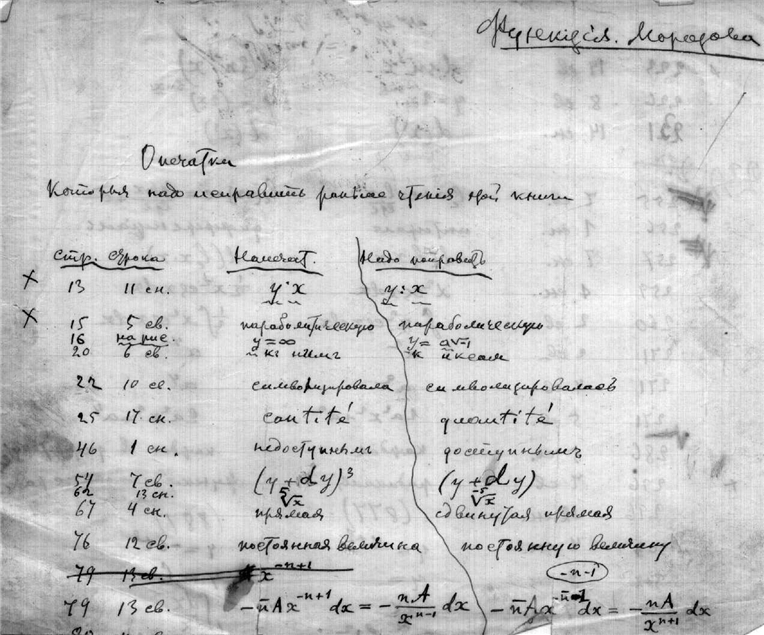 Функція. Морозова
Опечатки
Которыя надо исправить раньше чтенія этой книги
стр. строка Напечат. Надо поправить
13 11 сн. y∶x y:x
15 5 св. параболитическую параболическую
16 на рис. y=∞ y=a√-1
20 6 св. къ нимъ къ иксам
22 10 св. символизировала символизировалась
25 17 сн. cantité quantité
46 1 сн. недоступнымъ доступнымъ
54 7 св. (y+dy)³ (y+dy)
62 13 сн. ⁵√x ⁻⁵√x
67 4 сн. прямая сдвинутая прямая
76 12 св. постоянная величина постоянную величину
79 13 св. x⁻ⁿ⁺¹ -n-1
79 13 св. -nAx⁻ⁿ⁺¹dx = -nA/xⁿ⁻¹ dx -nAx⁻ⁿ⁻¹dx = -nA/xⁿ⁺¹ dx